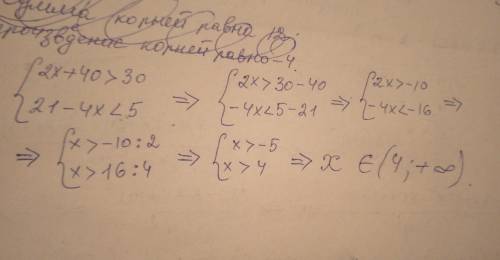 сумма корней равна 12.
произведение корней равно -4.
{2x+40>30 {2x>30-40 {2x>-10
{21-4x<5 => {-4x<5-21 => {-4x<-16 =>
=> {x>-10:2 => {x>-5 => x ∈ (4;+∞).
{x>16:4 {x>4